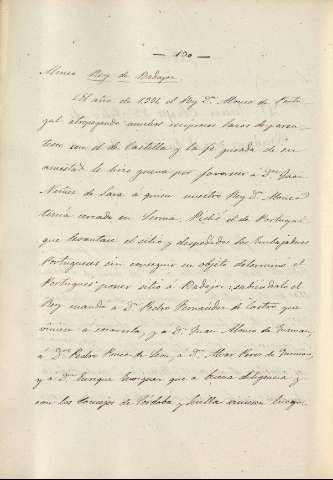 — 190 —
Alonso Rey de Badajoz.
El año de 1334 el Rey Dn. Alonso de Portu
gal atropogando amillos reciprocos lazos de paren
tesco con el de Castilla y la fé jurada de su
amistad le hizo guerra por favorecer a Dn. Juan
Nuñez de Lara á quien nuestro Rey D. Alonso
tenia cercado en Lerma. Pedió el de Portugal
que levantase el sitio, y despedidos los Embajadores
Portugueses sin conseguir su objeto determinó el
Portugues poner sitio á Badajoz; sabiendolo el
Rey mandó á D. Pedro Fernandez de Castro que
viniese á socorrerla, y á D. Juan Alonso de Guzman,
á Dn. Pedro Ponce de Leon, á D. Alvar Perez de Guzman,
y á Dn. Enrique Enriquez que á buena diligencia y
con los Concejos de Córdoba y Sevilla viniesen luego